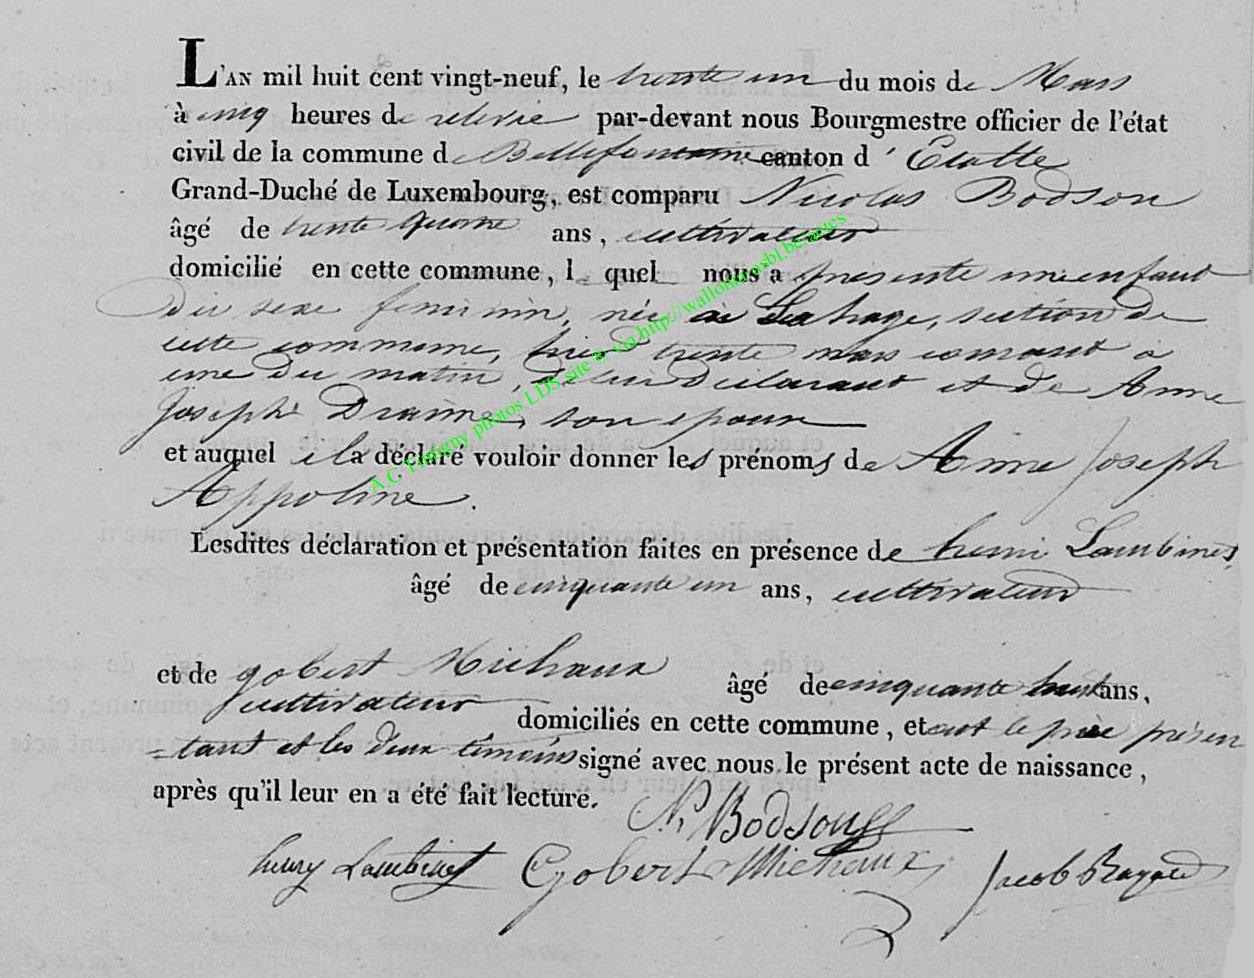 L'AN mil huit cent vingt-neuf, le trente un du mois de Mars
à cinq heures de relevée par-devant nous Bourgmestre officier de l'état
civil de la commune de Bellefontaine canton d'Etalle
Grand-Duché de Luxembourg, est comparu Nicolas Bodson
âgé de trente quatre ans, cultivateur
domicilié en cette commune, lequel nous a présenté un enfant
du sexe féminin, née à Lahage, section de
cette commune, hier trente mars courant à
une du matin, de lui déclarant et de Anne
Joseph Draime, son épouse
et auquel il a déclaré vouloir donner les prénoms de Anne Joseph
Appoline.
Lesdites déclaration et présentation faites en présence de henri Lambinet,
âgé de cinquante un ans, cultivateur
et de gobert Michaux âgé de cinquante huit ans,
cultivateur domiciliés en cette commune, et ont le père présen
-tant et les deux témoins signé avec nous le présent acte de naissance,
après qu'il leur en a été fait lecture.
N. Bodson
henry Lambinet Gobert Michaux Jacob
A.C Tintigny photos LDS site © via http://wallonia.asbl.be/actes